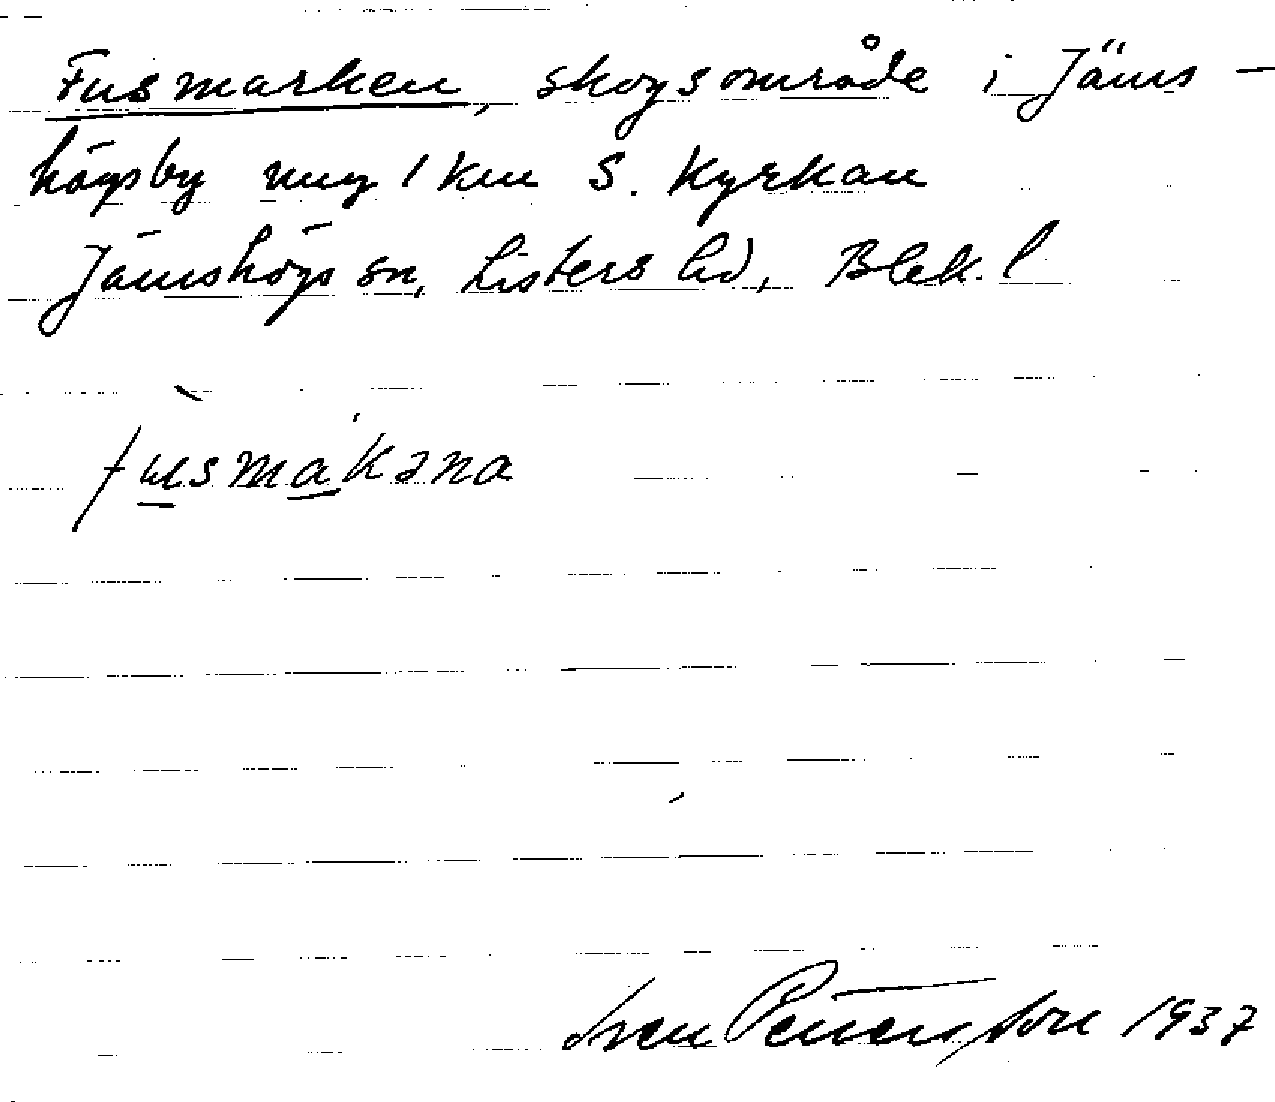 Fusmarken, skogsområde i Jäms-
högsby ung 1 km S. Kyrkan
Jämshögs sn, Listers hd, Blek. l
fùsmákəna
Sven Pettersson 1937